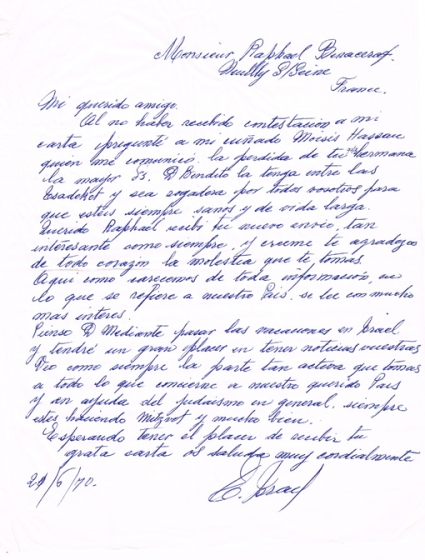 Monsieur Raphael Benacerraf
Neuilly S/Seine
France.
Mi querido amigo.
Al no haber recibido contestación a mi
carta pregunté a mi cuñado Moisis Hassan
quién me comunicó la perdida de tu hermana
la mayor Es. D Bendito la tenga entre las
Tsadekot y sea rogadora por todos vosotros para
que esteis siempre sanos y de vida larga.
Querido Raphael recibi tu nuevo envio, tan
interesante como siempre, y creeme te agradezco
de todo corazón la molestia que te tomas.
Aqui como carecemos de toda información, en
lo que se refiere a nuestro Pais. se lee con mucho
mas interes.
Pienso D Mediante pasar las vacaciones en Israel
y tendré un gran placer en tener noticias vuestras
Veo como siempre la parte tan activa que tomas
a todo lo que concierne a nuestro querido Pais
y en ayuda del judaismo en general. siempre
estes haciendo Mitzvot y mucho bien.
Esperando tener el placer de recibir tu
grata carta os saluda muy cordialmente
21/6/70.
E. Israel